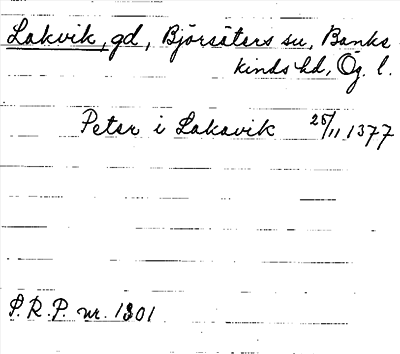 Lakvik, gd, Björsäters sn, Banke
kinds hd, Ög. l.
Peter i Lakavik 25/11 1377
S. R. P. nr. 1301